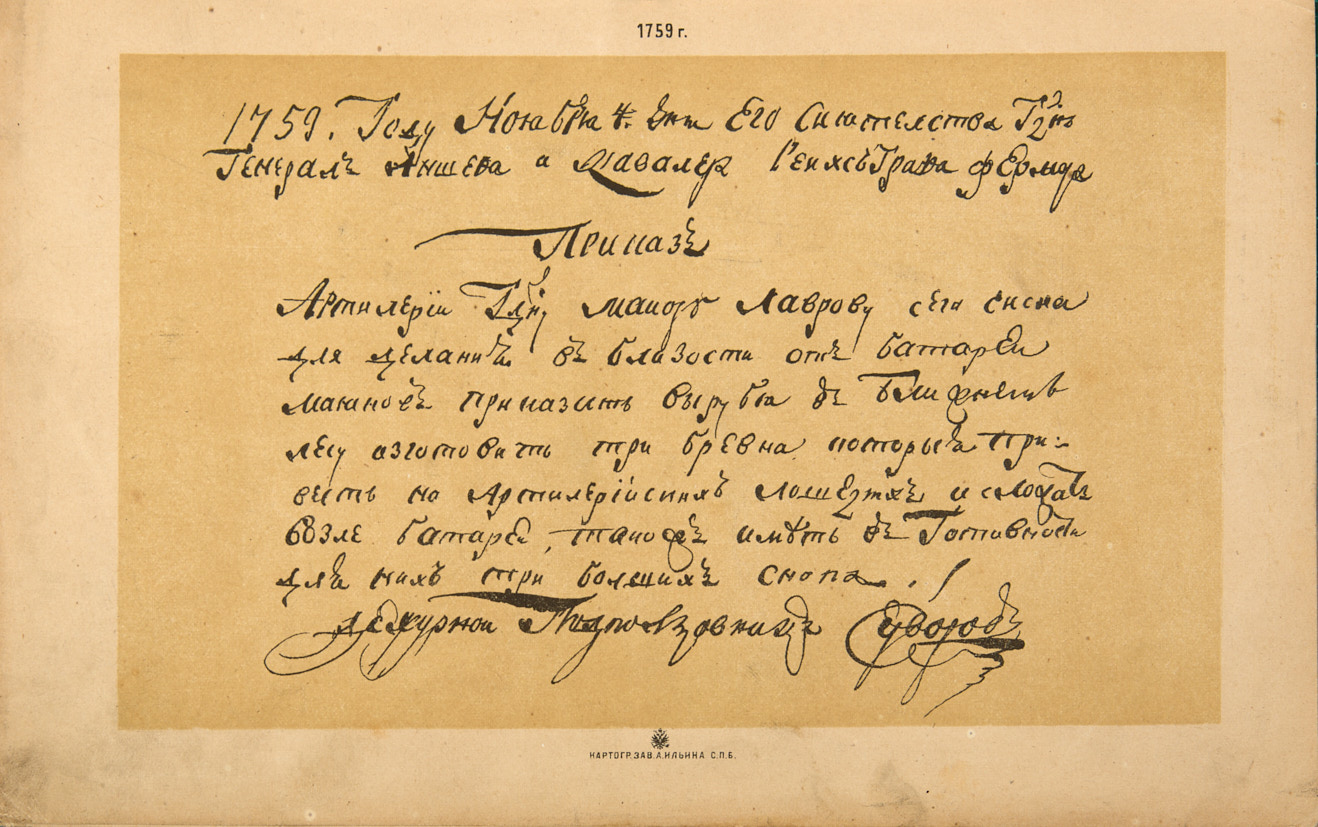 1759 г.
1759. Году Ноября 4. дня Его Сиятелства Гдна
Генералъ Аншефа и Кавалера Реихсъ Графа Фермора
Приказъ
Артилеріи Гдну маиору Лаврову сего числа
для делания въ близости отъ батареи
маяковъ приказать вырубя въ ближнемъ
лесу изготовить три бревна которыя при-
весть на Артилерійскихъ лошедяхъ и скласть
возле батареи, такожъ иметь въ Готовности
для нихъ три болшихъ снопа.
дежурной Подполковникъ Суворовъ
КАРТОГР. ЗАВ. А. ИЛЬИНА С.П.Б.